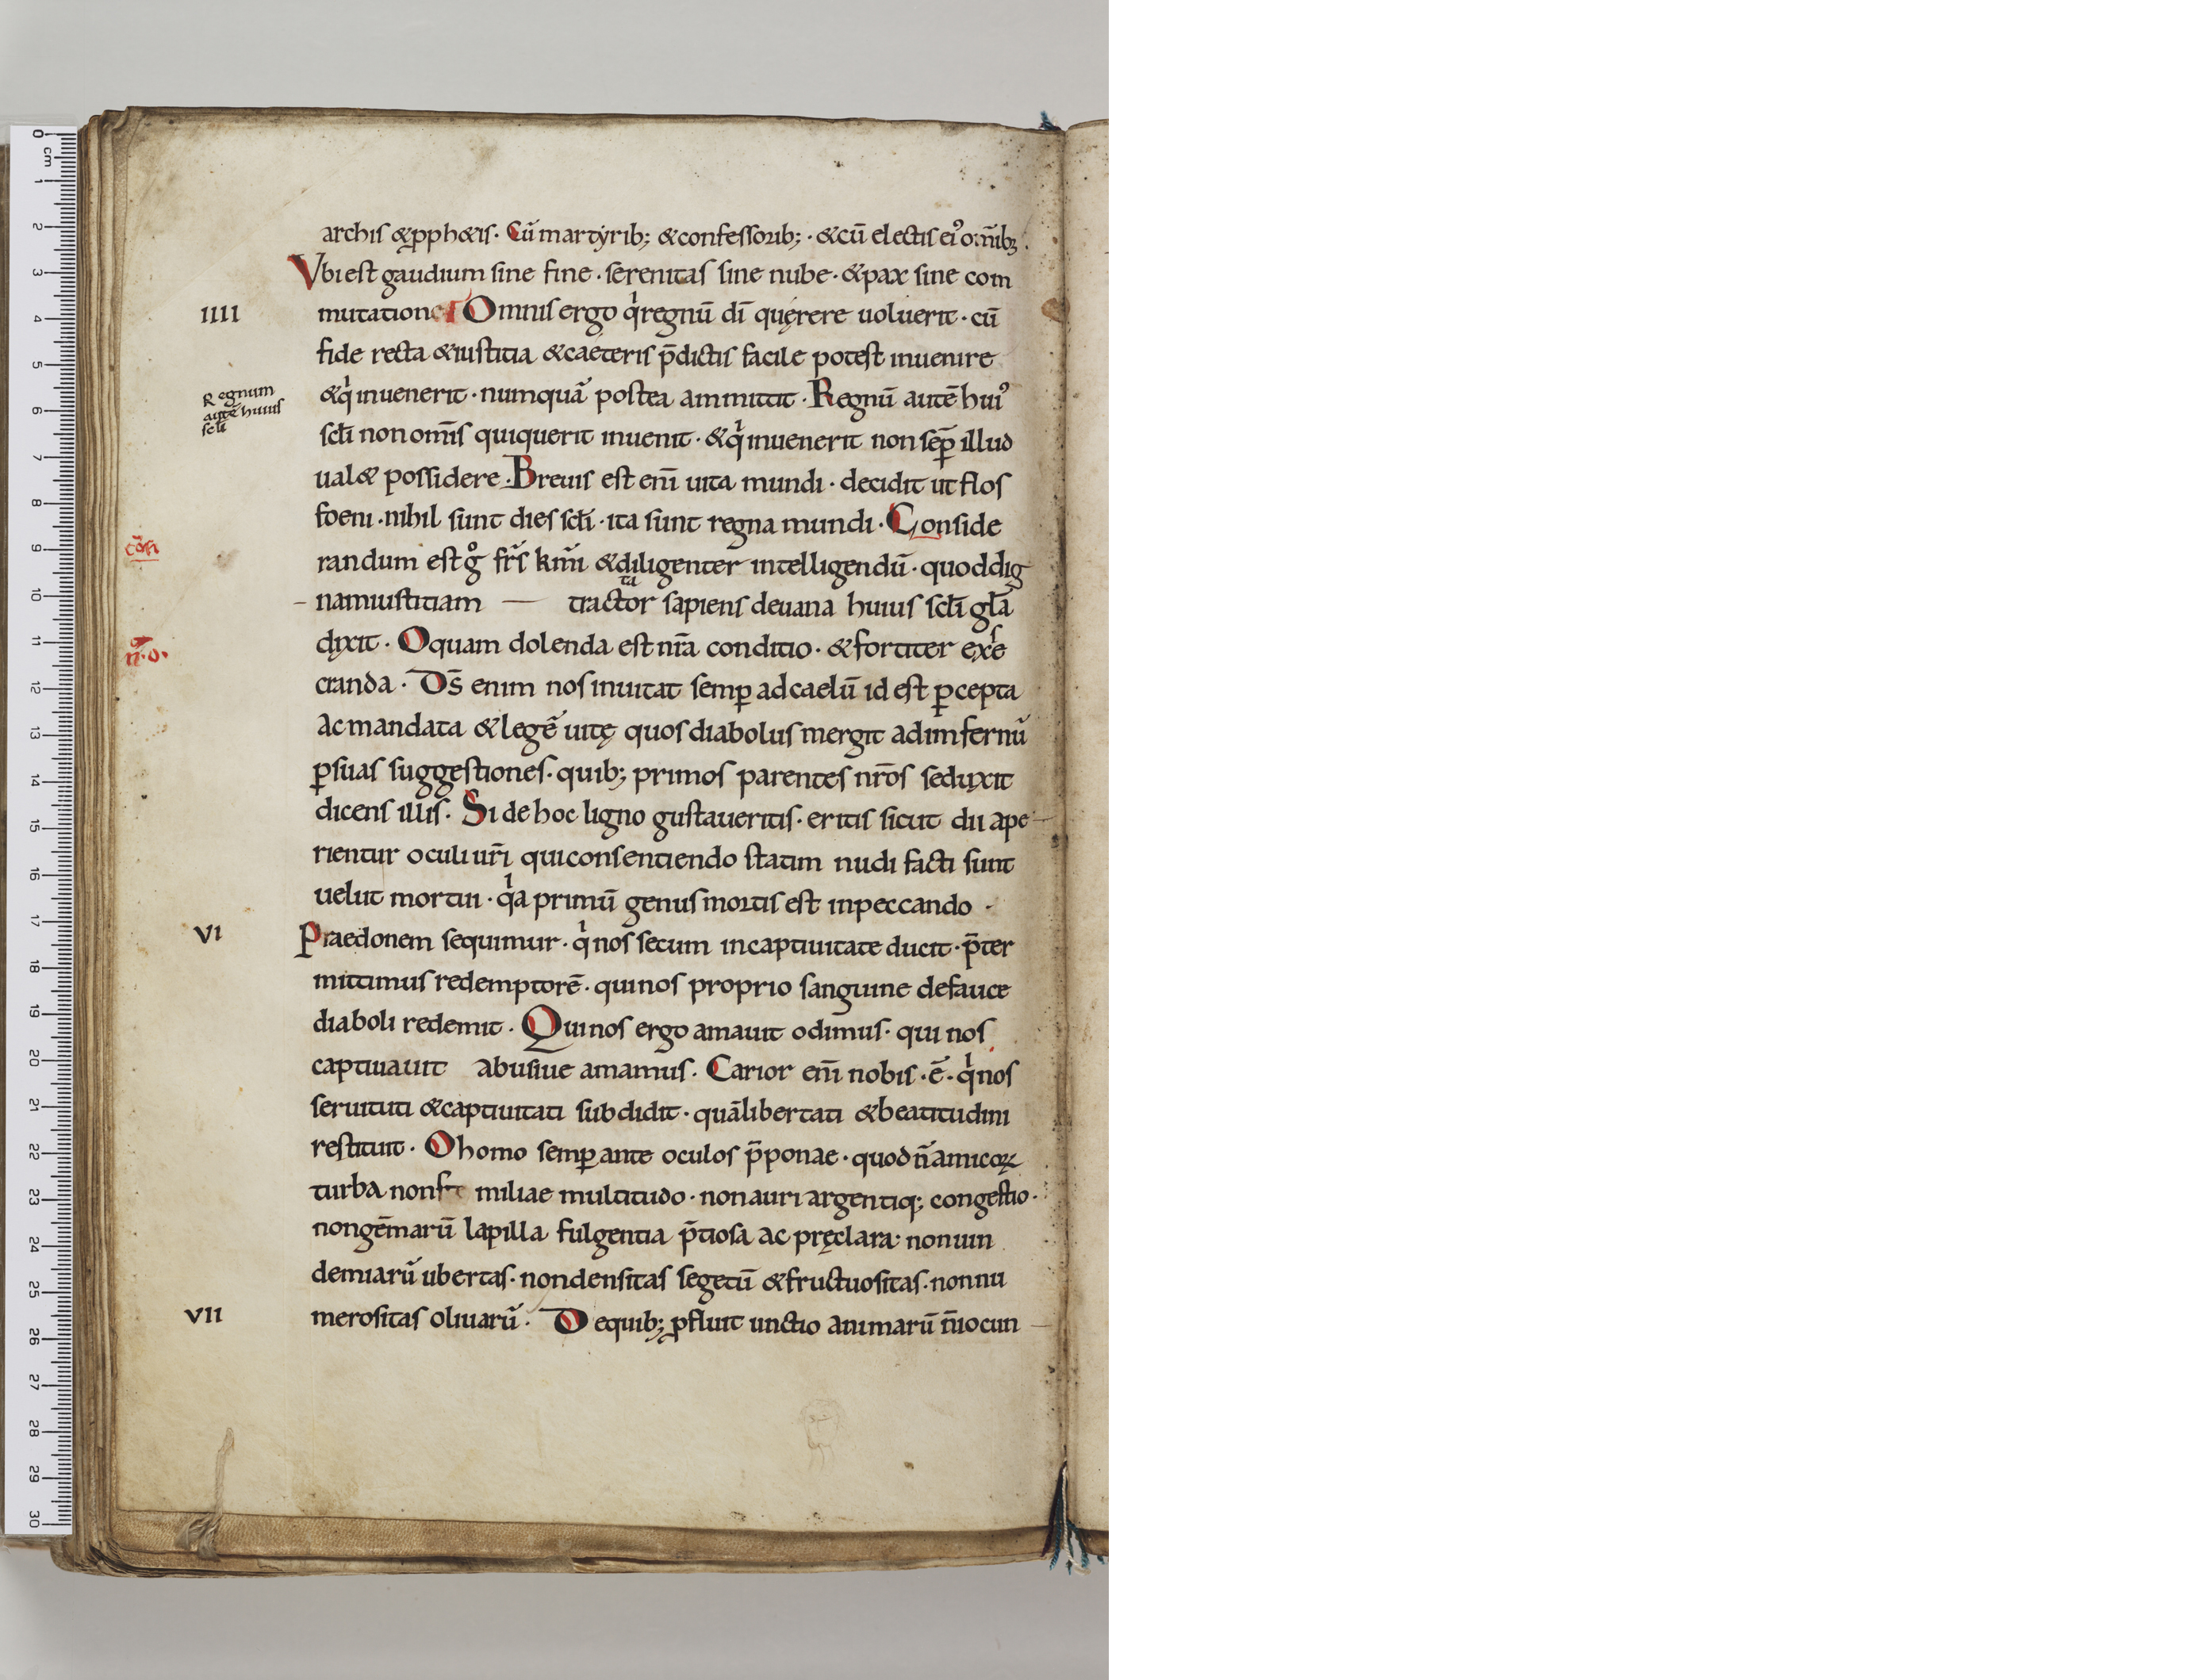 archis &ꝓph&is. Cū martyrib; &confessorib; · &cū electis ei᾽ om̄ib;.
Vbi est gaudium sine fine · serenitas sine nube · &pax sine com
IIII
mutatione Omnis ergo qͥ regnū dī quęrere uoluerit · cū
fide recta &iustitia &caeteris p̄dictis facile potest inuenire
Regnum
autē huius
scłi
&qͥ inuenerit · numquā postea ammittit · Regnū autē hui᾽
scłi non om̄s quiquerit inuenit · &qͥ inuenerit non sēꝑ illud
ual& possidere · Breuis est enī uita mundi · decidit ut flos
foeni · nihil sunt dies scłi · ita sunt regna mundi · Conside
randum est gͦ frs̄ km̄i &diligenter intelligendū · quoddig
namiustitiam — tractator sapiens deuana huius scłi gła
n̄.o.
dixit · O quam dolenda est nr̄a conditio · &fortiter exse
cranda · Ds̄ enim nos inuitat semꝑ ad caelū id est ꝑcepta
ac mandata &legē uitę quos diabolus mergit ad imfernū
ꝑsuas suggestiones · quib; primos parentes nr̄os seduxit
dicens illis · Si de hoc ligno gustaueritis · eritis sicut dii ape
rientur oculi ur̄i quiconsentiendo statim nudi facti sunt
uelut mortui · qͥa primū genus mortis est inpeccando ·
VI
Praedonem sequimur · qͥ nos secum incaptiuitate ducit · p̄ter
mittimus redemptorē · quinos proprio sanguine defauce
diaboli redemit · Quinos ergo amauit odimus · qui nos
captiuauit abusiue amamus · Carior enī nobis · ē · qͥ nos
seruituti &captiuitati subdidit · quālibertati &beatitudini
restituit · O homo semꝑ ante oculos p̄ponae · quod n̄ amicoꝝ
turba non miliae multitudo · non auri argentiq; congestio ·
nongēmarū lapilla fulgentia p̄tiosa ac pręclara · non uin
demiarū ubertas · nondensitas segetū &fructuositas · non nu
VII
merositas oliuarū · De quib; ꝓfluit unctio animarū n̄iocun